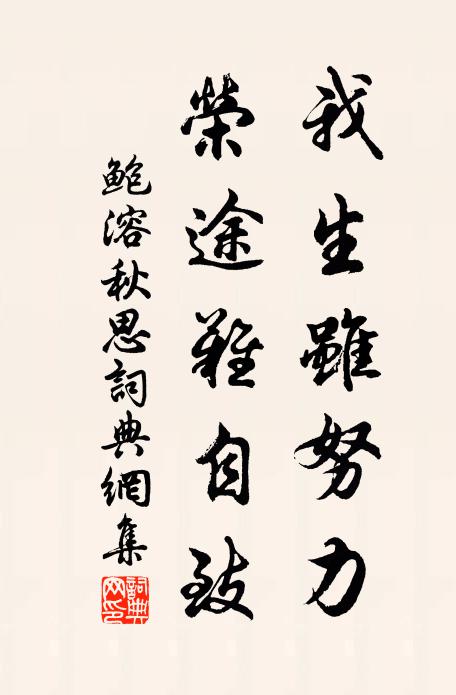 我生雖努力
榮途難自致
鮑溶秋思詞典網集
詞典網印